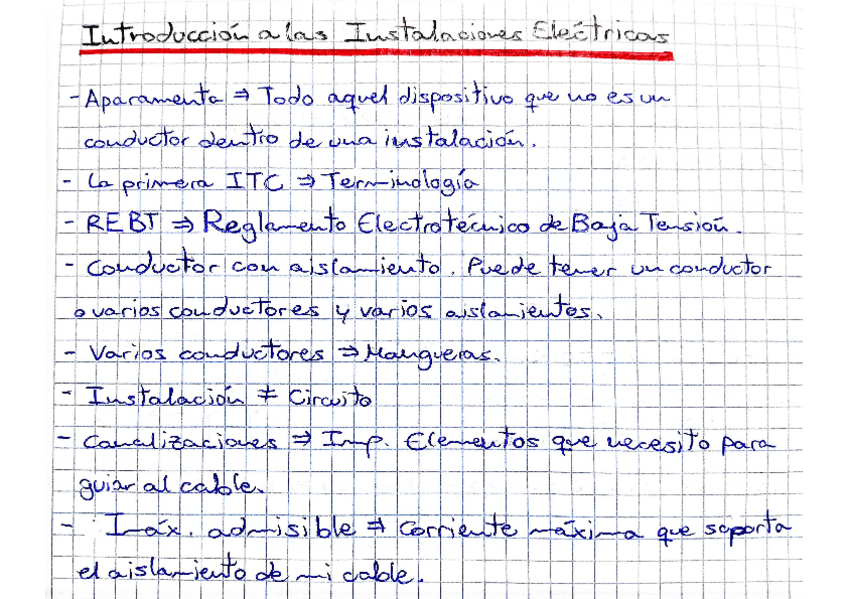 Introducción a las Instalaciones Eléctricas
- Aparamenta ⇒ Todo aquel dispositivo que no es un
conductor dentro de una instalación.
- La primera ITC ⇒ Terminología
- REBT ⇒ Reglamento Electrotécnico de Baja Tensión.
- Conductor con aislamiento. Puede tener un conductor
o varios conductores y varios aislamientos.
- Varios conductores ⇒ Mangueras.
- Instalación ≠ Circuito
- Canalizaciones ⇒ Imp. Elementos que necesito para
guiar al cable.
- Imáx. admisible ⇒ Corriente máxima que soporta
el aislamiento de mi cable.